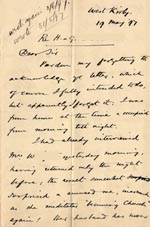 West Kirby,
19 May 87
Re H–g.
Dear Sir
Pardon my forgetting to
acknowledge yr letter, which
of course I fully intended to do,
but apparently I forgot it; I was
from home at the time & occupied
from morning till night.
I had already interviewed
Mrs W. yesterday morning,
having returned only the night
before; she
surprised & annoyed me, much
as she meditates becoming Church
again! Her husband has never